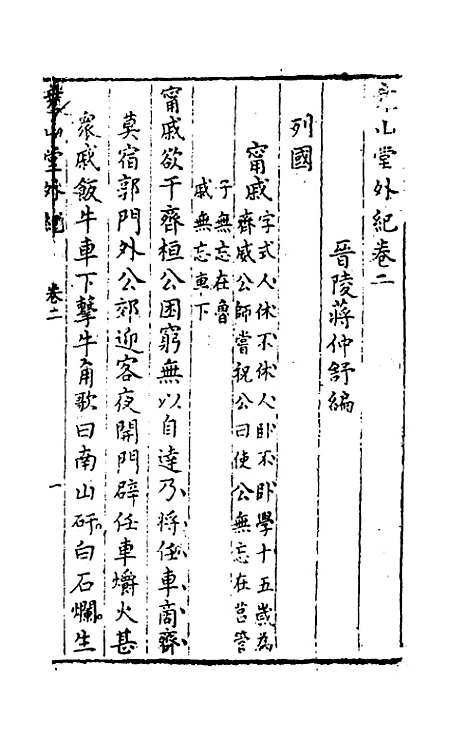 堯山堂外紀卷二
晉陵蔣仲舒編
列國
甯戚字式人休不休人卧不卧學十五歲為
齊威公師嘗祝公曰使公無忘在莒管
子無忘在魯
戚無忘車下
甯戚欲干齊桓公困窮無以自達乃將任車商齊
莫宿郭門外公郊迎客夜開門辟任車爝火甚
衆戚飯牛車下擊牛角歌曰南山矸白石爛生
堯山堂外紀 卷二 一